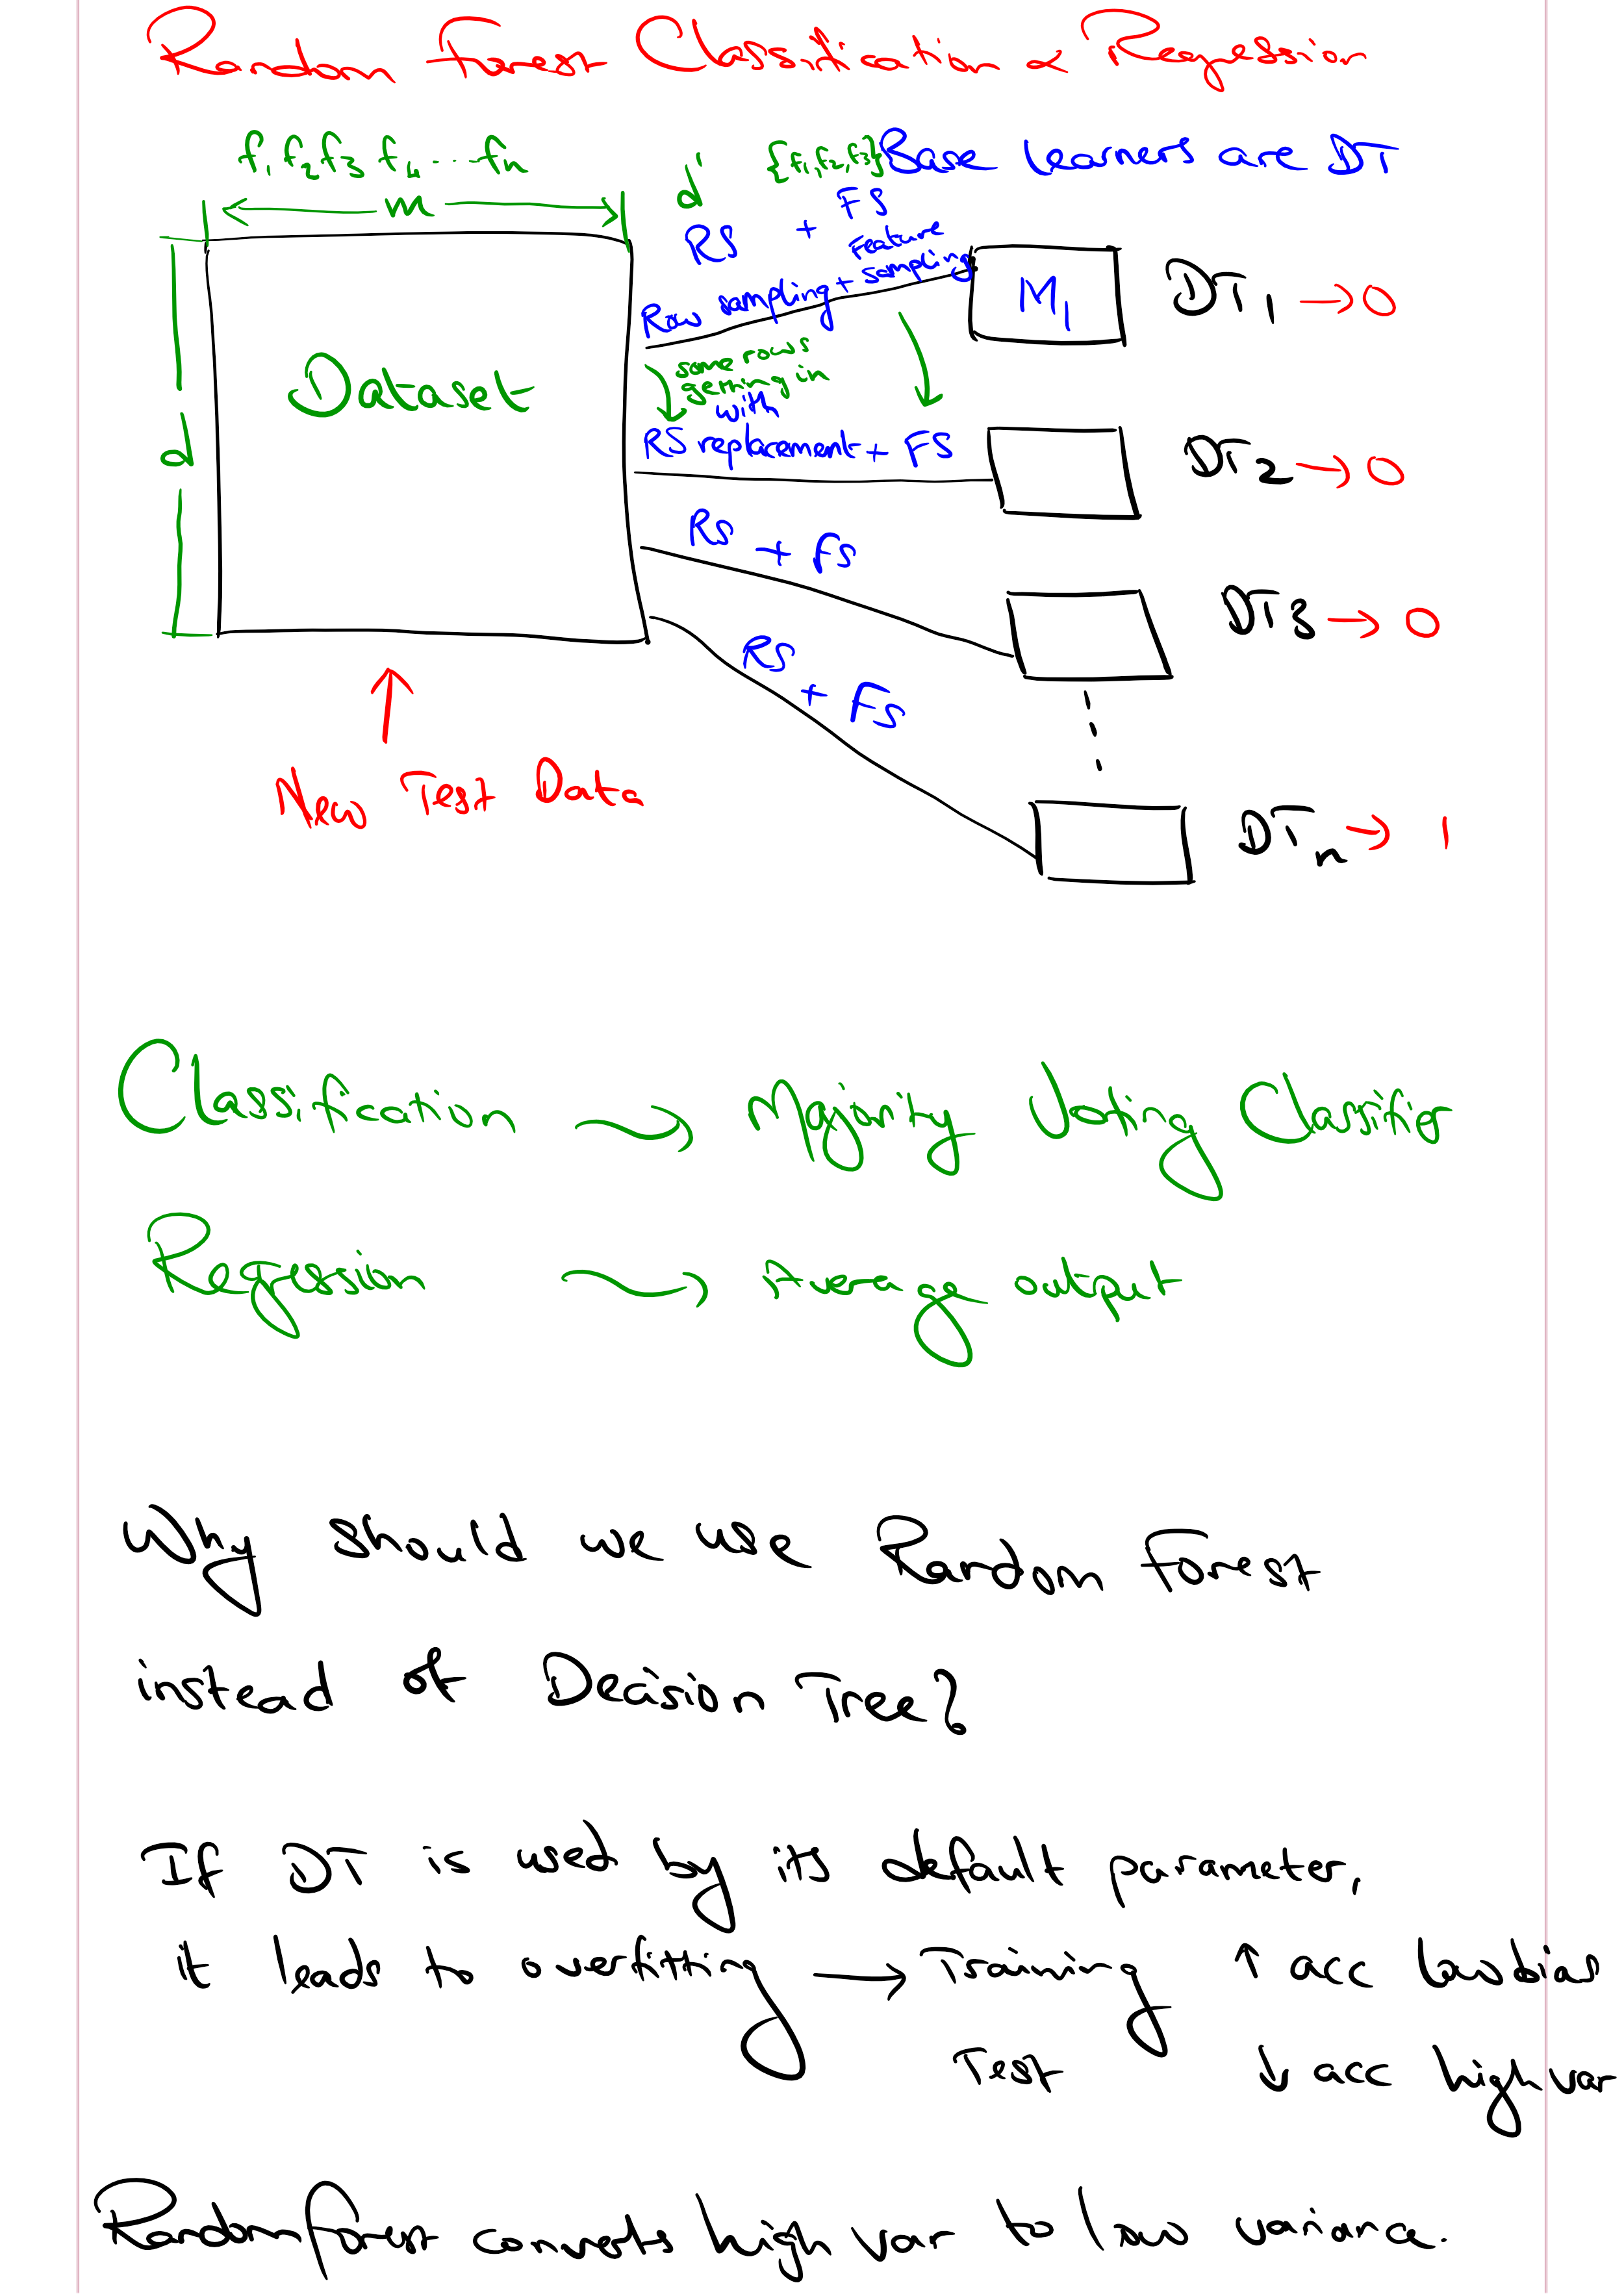 Random Forest Classification & Regression
f1 f2 f3 f4 ... fn
d' {f1,f2,f3} Base learners are DT
m
RS + FS
Row sampling + Feature sampling
M1
DT1 → 0
Dataset
d
some rows
getting in
with
RS replacement + FS
DT2 → 0
RS + FS
DT3 → 0
RS + FS
New Test Data
DTn → 1
Classification → Majority Voting Classifier
Regression → Average output
Why should we use Random Forest
instead of Decision Tree?
If DT is used by its default parameter,
it leads to overfitting → Training ↑ acc low bias
Test ↓ acc high var
Random forest converts high var to low variance.